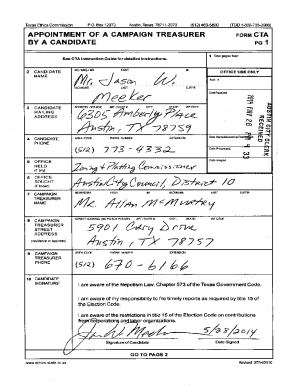 Texas Ethics Commission P.O. Box 12070 Austin, Texas 78711-2070 (512) 463-5800 (TDD 1-800-735-2989)
APPOINTMENT OF A CAMPAIGN TREASURER
BY A CANDIDATE
FORM CTA
PG 1
See CTA Instruction Guide for detailed instructions.
1 Total pages filed:
2 CANDIDATE NAME
MS / MRS / MR FIRST MI
Mr. Jason W.
NICKNAME LAST SUFFIX
Meeker
OFFICE USE ONLY
3 CANDIDATE MAILING ADDRESS
6305 Amberly Place
Austin, TX 78759
AUSTIN CITY CLERK
RECEIVED
2014 MAY 28 PM 4 33
4 CANDIDATE PHONE
AREA CODE PHONE NUMBER EXTENSION
(512) 773-4332
5 OFFICE HELD (if any)
Zoning & Platting Commissioner
6 OFFICE SOUGHT (if known)
Austin City Council, District 10
7 CAMPAIGN TREASURER NAME
MS / MRS / MR FIRST MI NICKNAME LAST SUFFIX
Mr. Allan McMurtry
8 CAMPAIGN TREASURER STREET ADDRESS
(residence or business)
5901 Cary Drive
Austin, TX 78757
9 CAMPAIGN TREASURER PHONE
AREA CODE PHONE NUMBER EXTENSION
(512) 670-6166
10 CANDIDATE SIGNATURE
I am aware of the Nepotism Law, Chapter 573 of the Texas Government Code.
I am aware of my responsibility to file timely reports as required by title 15 of
the Election Code.
I am aware of the restrictions in title 15 of the Election Code on contributions
from corporations and labor organizations.
5/28/2014
Signature of Candidate Date Signed
GO TO PAGE 2
www.ethics.state.tx.us